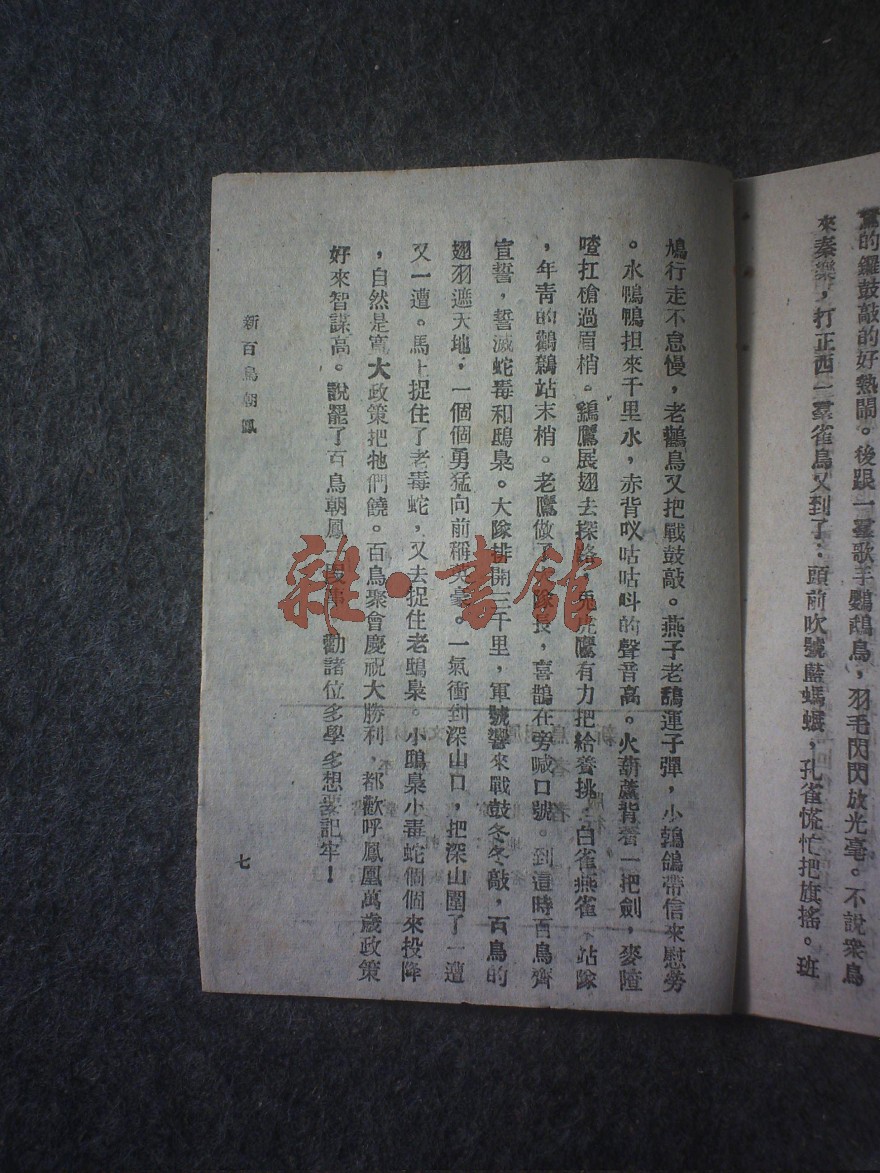 鴦的鑼鼓敲的好熱閙。後跟一羣歌手鸚鵡鳥，羽毛閃閃放光毫。不說衆鳥
來奏樂，打正西一羣雀鳥又到了：頭前吹號藍螞𧎚，孔雀慌忙把旗搖。班
鳩行走不怠慢，老鸛鳥又把戰鼓敲。燕子老鴰運子彈，小鵓鴿帶信來慰勞
。水鴨鴨担來千里水，赤背叹咕咕呌的聲音高。火葫蘆背着一把劍，麥
喳扛槍過眉梢。鷂鷹展翅去探路，兎虎鷹有力把給養挑。白雀燕雀站隊
，年靑的鵪鶉站末梢。老鷹做了隊長，喜鵲在旁喊口號。到這時百鳥齊
宣誓，誓滅蛇毒和鴟梟。大隊排開三千里，軍號響來戰鼓冬冬敲，百鳥的
翅羽遮天地；一個個勇猛向前稱英豪。一氣衝到深山口，把深山圍了一遭
又一遭。馬上捉住了老毒蛇，又去捉住老鴟梟。小鴟梟小毒蛇個個來投降
，自然是寬大政策把牠們饒。百鳥聚會慶祝大勝利，都歡呼鳳凰萬歲政策
好來智謀高。說罷了百鳥朝鳳一段事，勸諸位多學多想要記牢！
新百鳥朝鳳
七
雜·書館